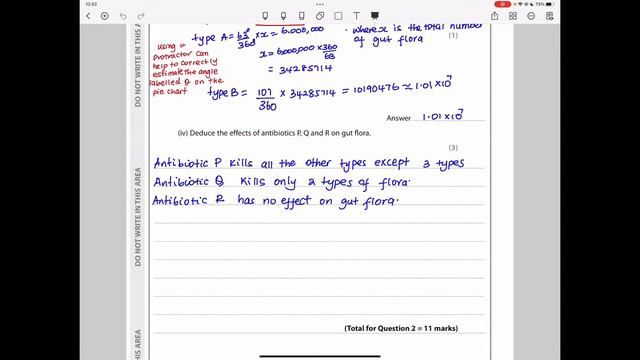 12:52
73%
type A = 63°/360° × x = 6,000,000 · where x is the total number of gut flora
(1)
x = 6,000,000 × 360/63
= 34285714
using a
protractor can
help to correctly
estimate the angle
labelled θ on the
pie chart
type B = 107/360 × 34285714 = 10190476 ≈ 1.01 × 10⁷
Answer 1.01 × 10⁷
(iv) Deduce the effects of antibiotics P, Q and R on gut flora.
(3)
Antibiotic P kills all the other types except 3 types
Antibiotic Q kills only 2 types of flora.
Antibiotic R has no effect on gut flora.
(Total for Question 2 = 11 marks)
DO NOT WRITE IN THIS AREA
DO NOT WRITE IN THIS AREA
AREA